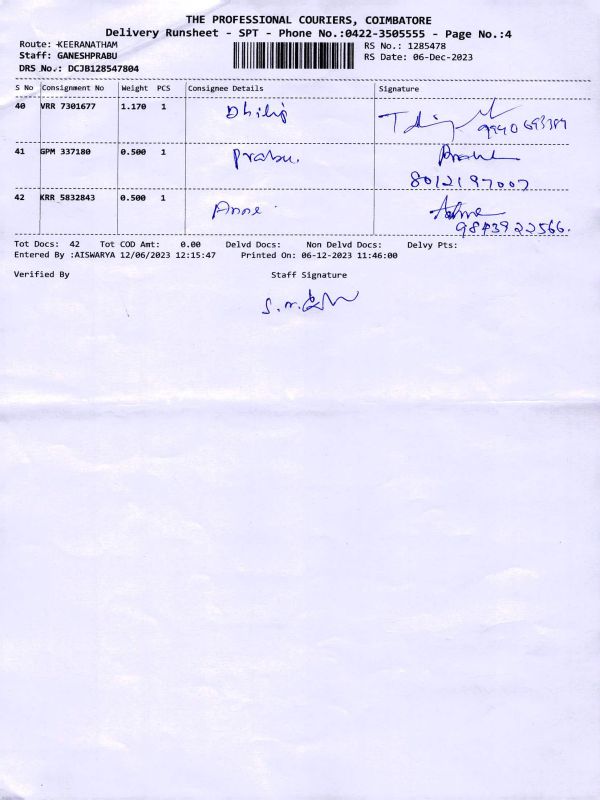 THE PROFESSIONAL COURIERS, COIMBATORE
Delivery Runsheet - SPT - Phone No.:0422-3505555 - Page No.:4
Route: KEERANATHAM RS No.: 1285478
Staff: GANESHPRABU RS Date: 06-Dec-2023
DRS No.: DCJB128547804
S No Consignment No Weight PCS Consignee Details Signature
40 VRR 7301677 1.170 1 Dhilip
41 GPM 337180 0.500 1 Prabu.
8012197007
42 KRR 5832843 0.500 1 Anne
Tot Docs: 42 Tot COD Amt: 0.00 Delvd Docs: Non Delvd Docs: Delvy Pts:
Entered By :AISWARYA 12/06/2023 12:15:47 Printed On: 06-12-2023 11:46:00
Verified By Staff Signature